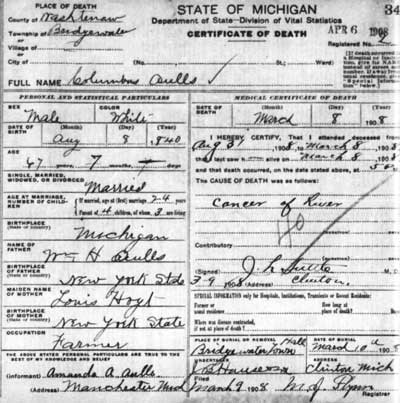 PLACE OF DEATH
STATE OF MICHIGAN
34
County of Washtenaw
Department of State—Division of Vital Statistics
Township of Bridgewater
CERTIFICATE OF DEATH
APR 6 1908
or
Village of
Registered No. 2
or
City of
(No.
St.;
Ward)
FULL NAME Columbus Aulls
PERSONAL AND STATISTICAL PARTICULARS
MEDICAL CERTIFICATE OF DEATH
SEX
Male
COLOR
White
DATE OF DEATH
(Month) (Day) (Year)
March 8 1908
DATE OF BIRTH
(Month) (Day) (Year)
Aug 8 1840
I HEREBY CERTIFY, That I attended deceased from
Aug 31 1908, to March 8 1908
AGE
67 years, 7 months, days
that I last saw h alive on March 8 1908
and that death occurred, on the date stated above, at
SINGLE, MARRIED, WIDOWED, OR DIVORCED
Married
The CAUSE OF DEATH was as follows:
Cancer of Liver
AGE AT MARRIAGE, NUMBER OF CHILDREN
If married, age at (first) marriage 24 years
Parent of 4 children, of whom 3 are living
40
BIRTHPLACE
(State or country)
Michigan
Contributory
NAME OF FATHER
Wm H Aulls
(Signed) M. D.
BIRTHPLACE OF FATHER
(State or country)
New York State
3-9 1908 (Address) Clinton
MAIDEN NAME OF MOTHER
Lovis Hoyt
SPECIAL INFORMATION only for Hospitals, Institutions, Transients or Recent Residents:
BIRTHPLACE OF MOTHER
(State or country)
New York State
Where was disease contracted,
if not at place of death?
OCCUPATION
Farmer
PLACE OF BURIAL OR REMOVAL
Bridgewater Town Hall
DATE OF BURIAL
March 10th 1908
THE ABOVE STATED PERSONAL PARTICULARS ARE TRUE TO THE
BEST OF MY KNOWLEDGE AND BELIEF
UNDERTAKER
ADDRESS
Clinton Mich
(Informant) Amanda A. Aulls
(Address) Manchester Mich
Filed March 9 1908
M J Flynn
Registrar